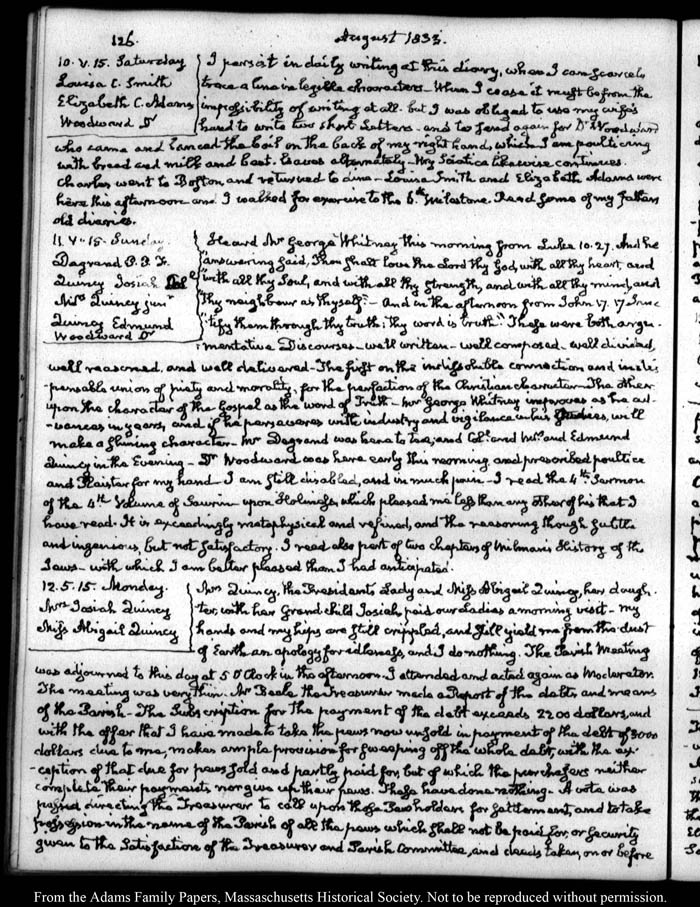 126.
August 1833.
10. V. 15. Saturday
Louisa C. Smith
Elizabeth C. Adams
Woodward Dr
I persist in daily writing at this diary, when I can scarcely
trace a line in legible characters - When I cease it must be from the
impossibility of writing at all. but I was obliged to use my wife's
hand to write two short Letters - and to send again for Dr Woodward
who came and lanced the boil on the back of my right hand, which I am poulticing
with bread and milk and beet-leaves alternately - My Sciatica likewise continues.
Charles went to Boston and returned to dine - Louisa Smith and Elizabeth Adams were
here this afternoon and I walked for exercise to the 6th milestone. Read some of my fathers
old diaries.
11. V. 15. Sunday.
Degrand P. P. F.
Quincy Josiah
Mrs Quincy junr
Quincy Edmund
Woodward Dr
Heard Mr George Whitney this morning from Luke 10. 27. And he
"answering said, Thou shalt love the Lord thy God, with all thy heart, and
"with all thy Soul, and with all thy strength, and with all thy mind, and
"Thy neighbour as thyself" - And in the afternoon from John 17. 17 Sanc
"tify them through thy truth; Thy word is truth." These were both argu-
mentative Discourses - well written - well composed - well divided,
well reasoned, and well delivered - The first on the indissoluble connection and indis-
pensable union of piety and morality, for the perfection of the Christian character - The other
upon the character of the Gospel as the word of Truth - Mr George Whitney improves as he ad-
-vances in years, and if he perseveres with industry and vigilance in his Studies, will
make a shining character - Mr Degrand was here to tea, and Col. and Mrs. and Edmund
Quincy in the Evening - Dr Woodward was here early this morning and prescribed poultice
and Plaister for my hand - I am still disabled, and in much pain - I read the 4th Sermon
of the 4th Volume of Saurin upon Holiness, which pleased me less than any other of his that I
have read. It is exceedingly metaphysical and refined, and the reasoning though subtle
and ingenious, but not satisfactory. I read also part of two chapters of Milman's History of the
Jews - with which I am better pleased than I had anticipated.
12. 5. 15. Monday.
Mrs Josiah Quincy
Miss Abigail Quincy
Mrs Quincy, the Presidents Lady and Miss Abigail Quincy, her daugh-
ter, with her Grand child Josiah, paid our Ladies a morning visit - My
hands and my hips are still crippled, and still yield me from the dust
of Earth an apology for idleness, and I do nothing. The Parish Meeting
was adjourned to this day at 5 O'Clock in the afternoon. I attended and acted again as Moderator.
The meeting was very thin. Mr Beale the Treasurer made a Report of the debts and means
of the Parish - The Subscription for the payment of the debt exceeds 2200 dollars, and
with the offer that I have made to take the pews now unsold in payment of the debt of 3000
dollars due to me, makes ample provision for sweeping off the whole debt, with the ex-
-ception of that due for pews sold and partly paid for, but of which the purchasers neither
complete their payments nor give up their pews. These have done nothing. A vote was
passed directing the Treasurer to call upon those Pew holders for settlement, and to take
possession in the name of the Parish of all the pews which shall not be paid for, or security
given to the Satisfaction of the Treasurer and Parish Committee, and deeds taken, on or before
From the Adams Family Papers, Massachusetts Historical Society. Not to be reproduced without permission.